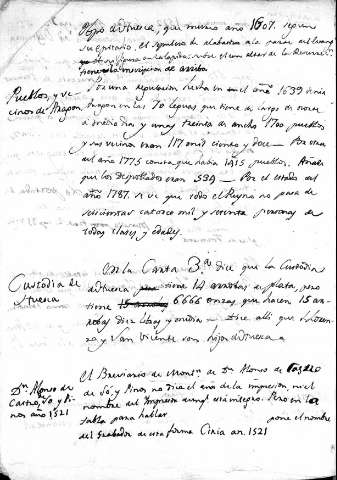 Obispo de Huesca, que murio año 1607. segun
su epitafio. El sepulcro de alabastro
tiene la inscripcion de arriba.
Pueblos, y ve-
cinos de Aragon.
Por una regulacion hecha en el año 1639 tenia
Aragon en las 70 leguas que tiene de largo de norte
a medio dia y unas treinta de ancho 1700 pueblos
y sus vecinos eran 117 mil ciento y doce — Por otra
del año 1775 consta que habia 1415 pueblos. Añade
que los despoblados eran 534 — Por el estado del
año 1787. se ve que todo el Reyno no pasa de
seiscientas catorce mil y setenta personas de
todas clases, y edades.
Custodia de
Huesca
En la Carta 3.ª dice que la Custodia
de Huesca tiene 14 arrobas de plata, pero
tiene 6666 onzas que hacen 15 ar-
robas diez libras y media — Dice alli que S. Loren-
zo y San Vicente son hijos de Huesca
Dn. Alonso de
Castro, So y Pi-
nos año 1521
El Breviario de Mont.n de Dn. Alonso de Castro
de Só, y Pinos no dice el año de la impresion, ni el
nombre del Impresor aunq.e está integro. Pero en la
tabla para hablar pone el nombre
del Grabador de esta forma Cinia an. 1521